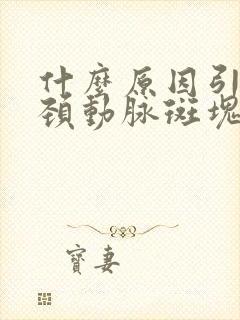 什麼原因引
頸動脈斑塊
寶妻